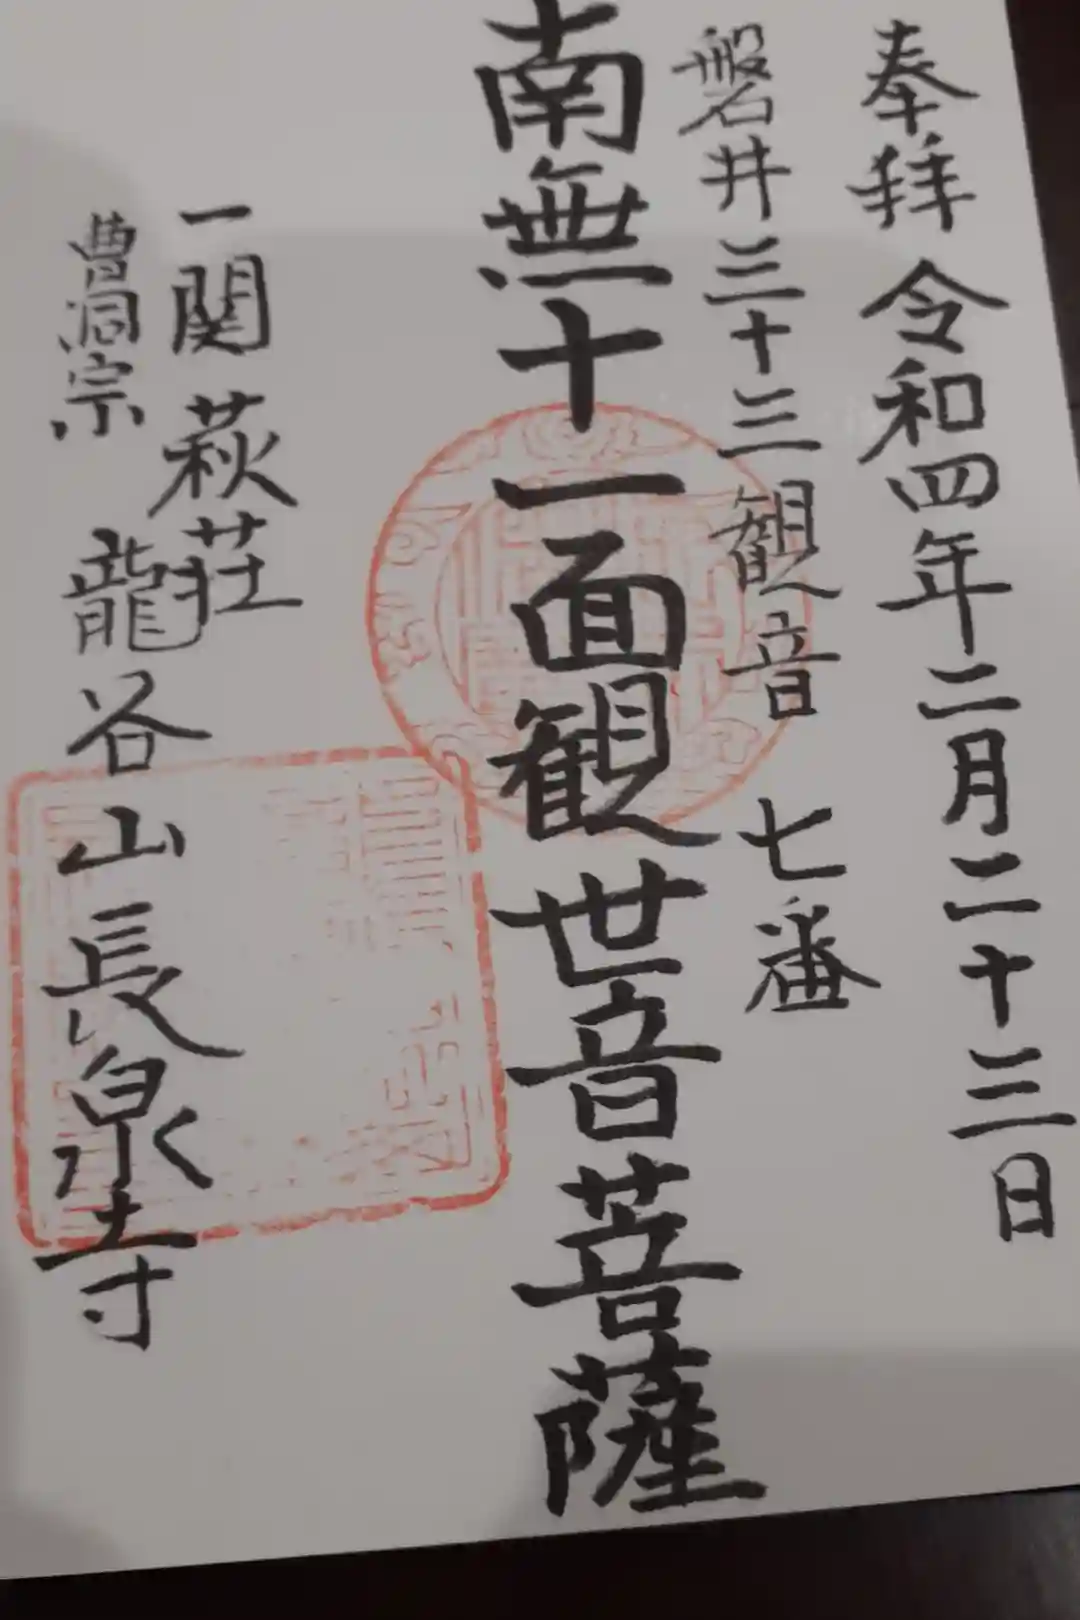 奉拝 令和四年二月二十三日
磐井三十三観音 七番
南無十一面観世音菩薩
一関 萩荘
曹洞宗 龍谷山長泉寺